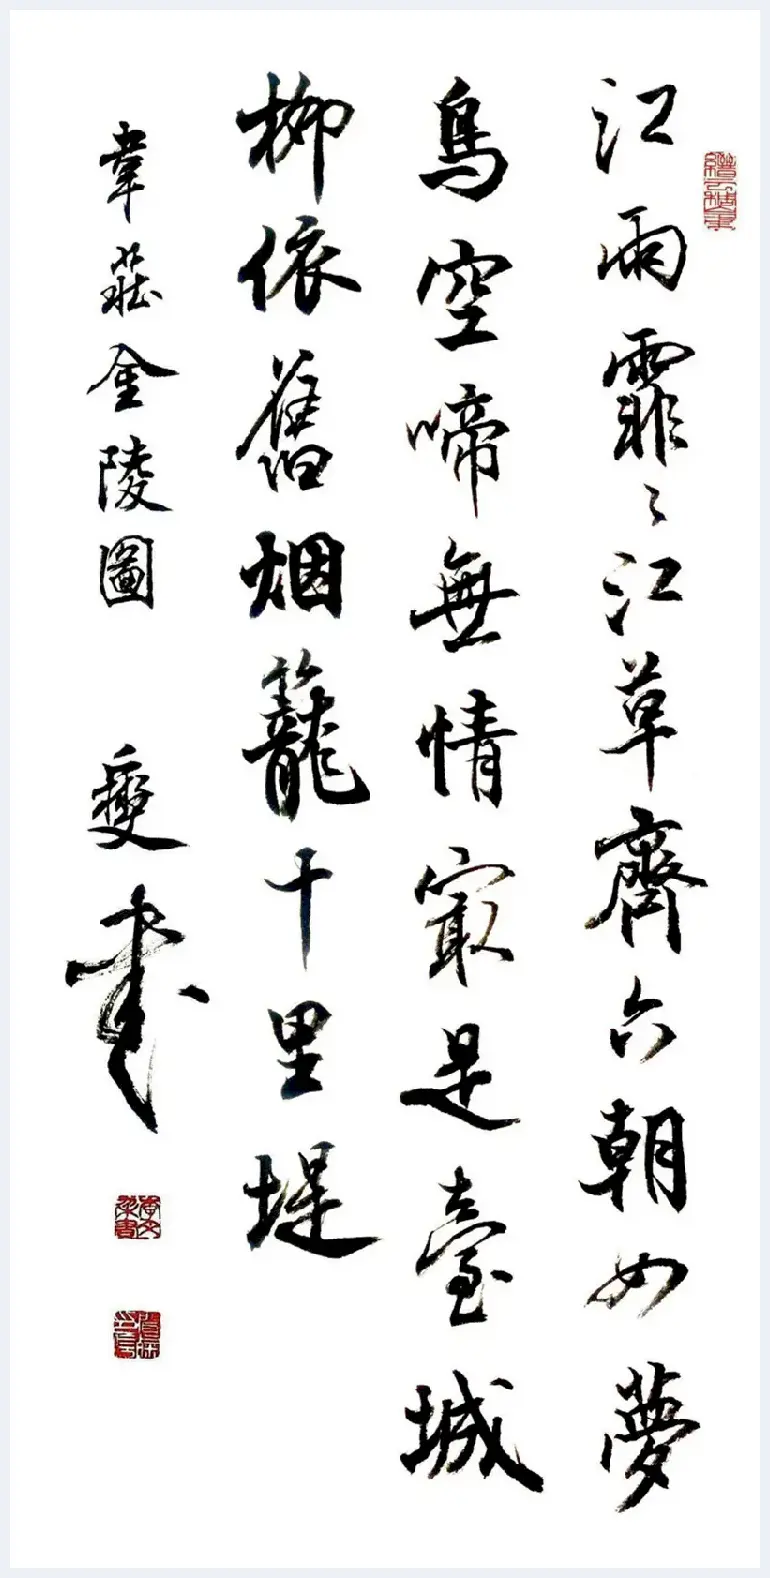 江雨霏々江草齊六朝如夢
鳥空啼無情最是臺城
柳依舊烟籠十里堤
韋莊金陵圖 書